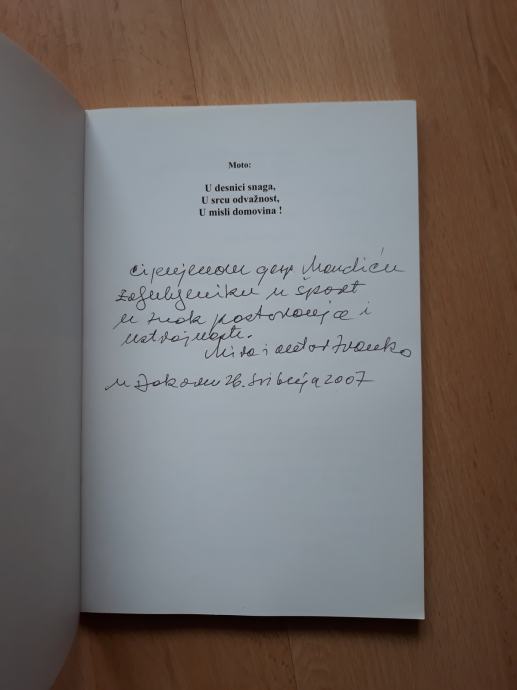 Moto:
U desnici snaga,
U srcu odvažnost,
U misli domovina !
Cijenjenom gosp Mandiću
zaljubljeniku u šport
u znak poštovanja i
ustrajnosti.
i autor Ivanko
u 26. svibnja 2007